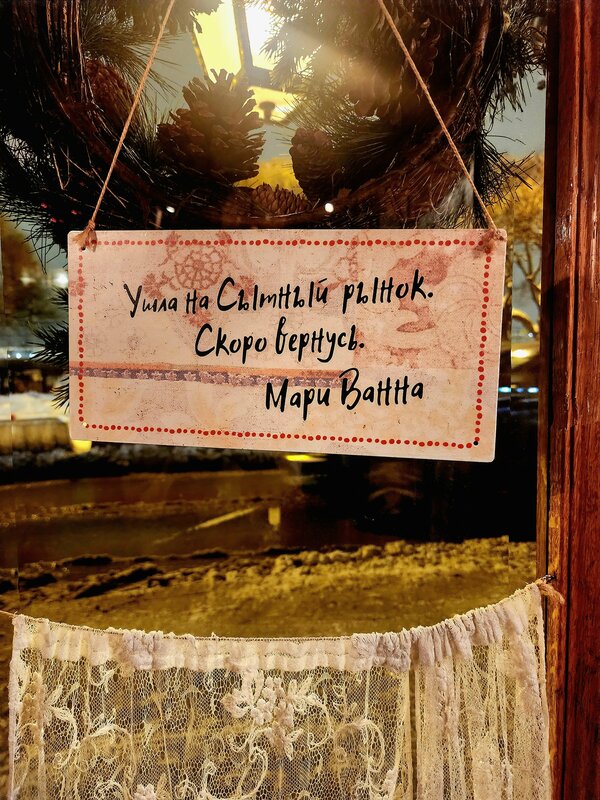 Ушла на Сытный рынок.
Скоро вернусь.
Мари Ванна